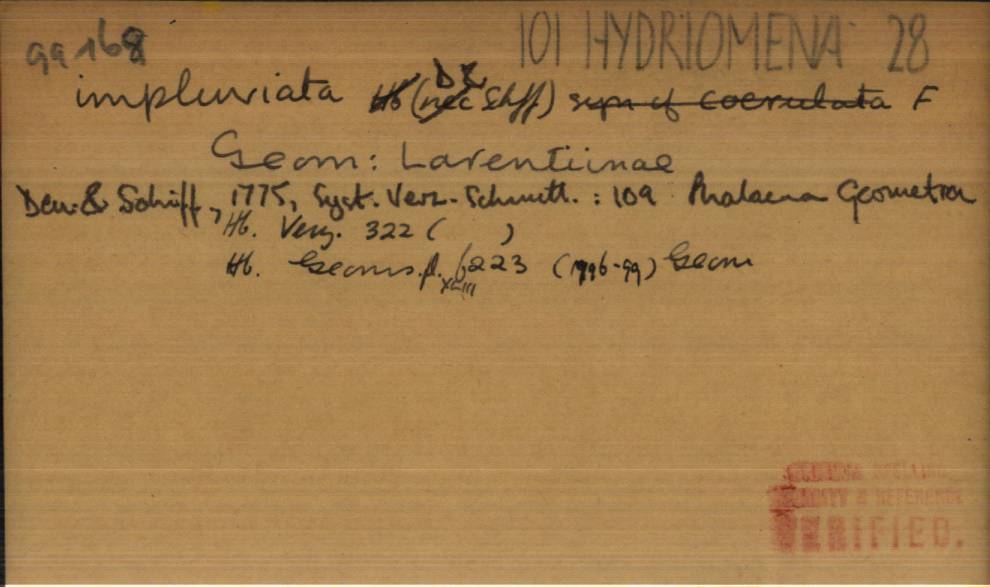 qq 168
101 HYDRIOMENA 28
impluviata Hb (nec D & Shff) syn of coerulata F
Geom: Larentiinae
Den. & Schiff, 1775, Syst. Verz. Schmett. : 109 Phalaena Geometra
Hb. Verz. 322 ( )
Hb. Geoms. pl. f. 223 (1796-99) Geom
& REFERENCE
VERIFIED.